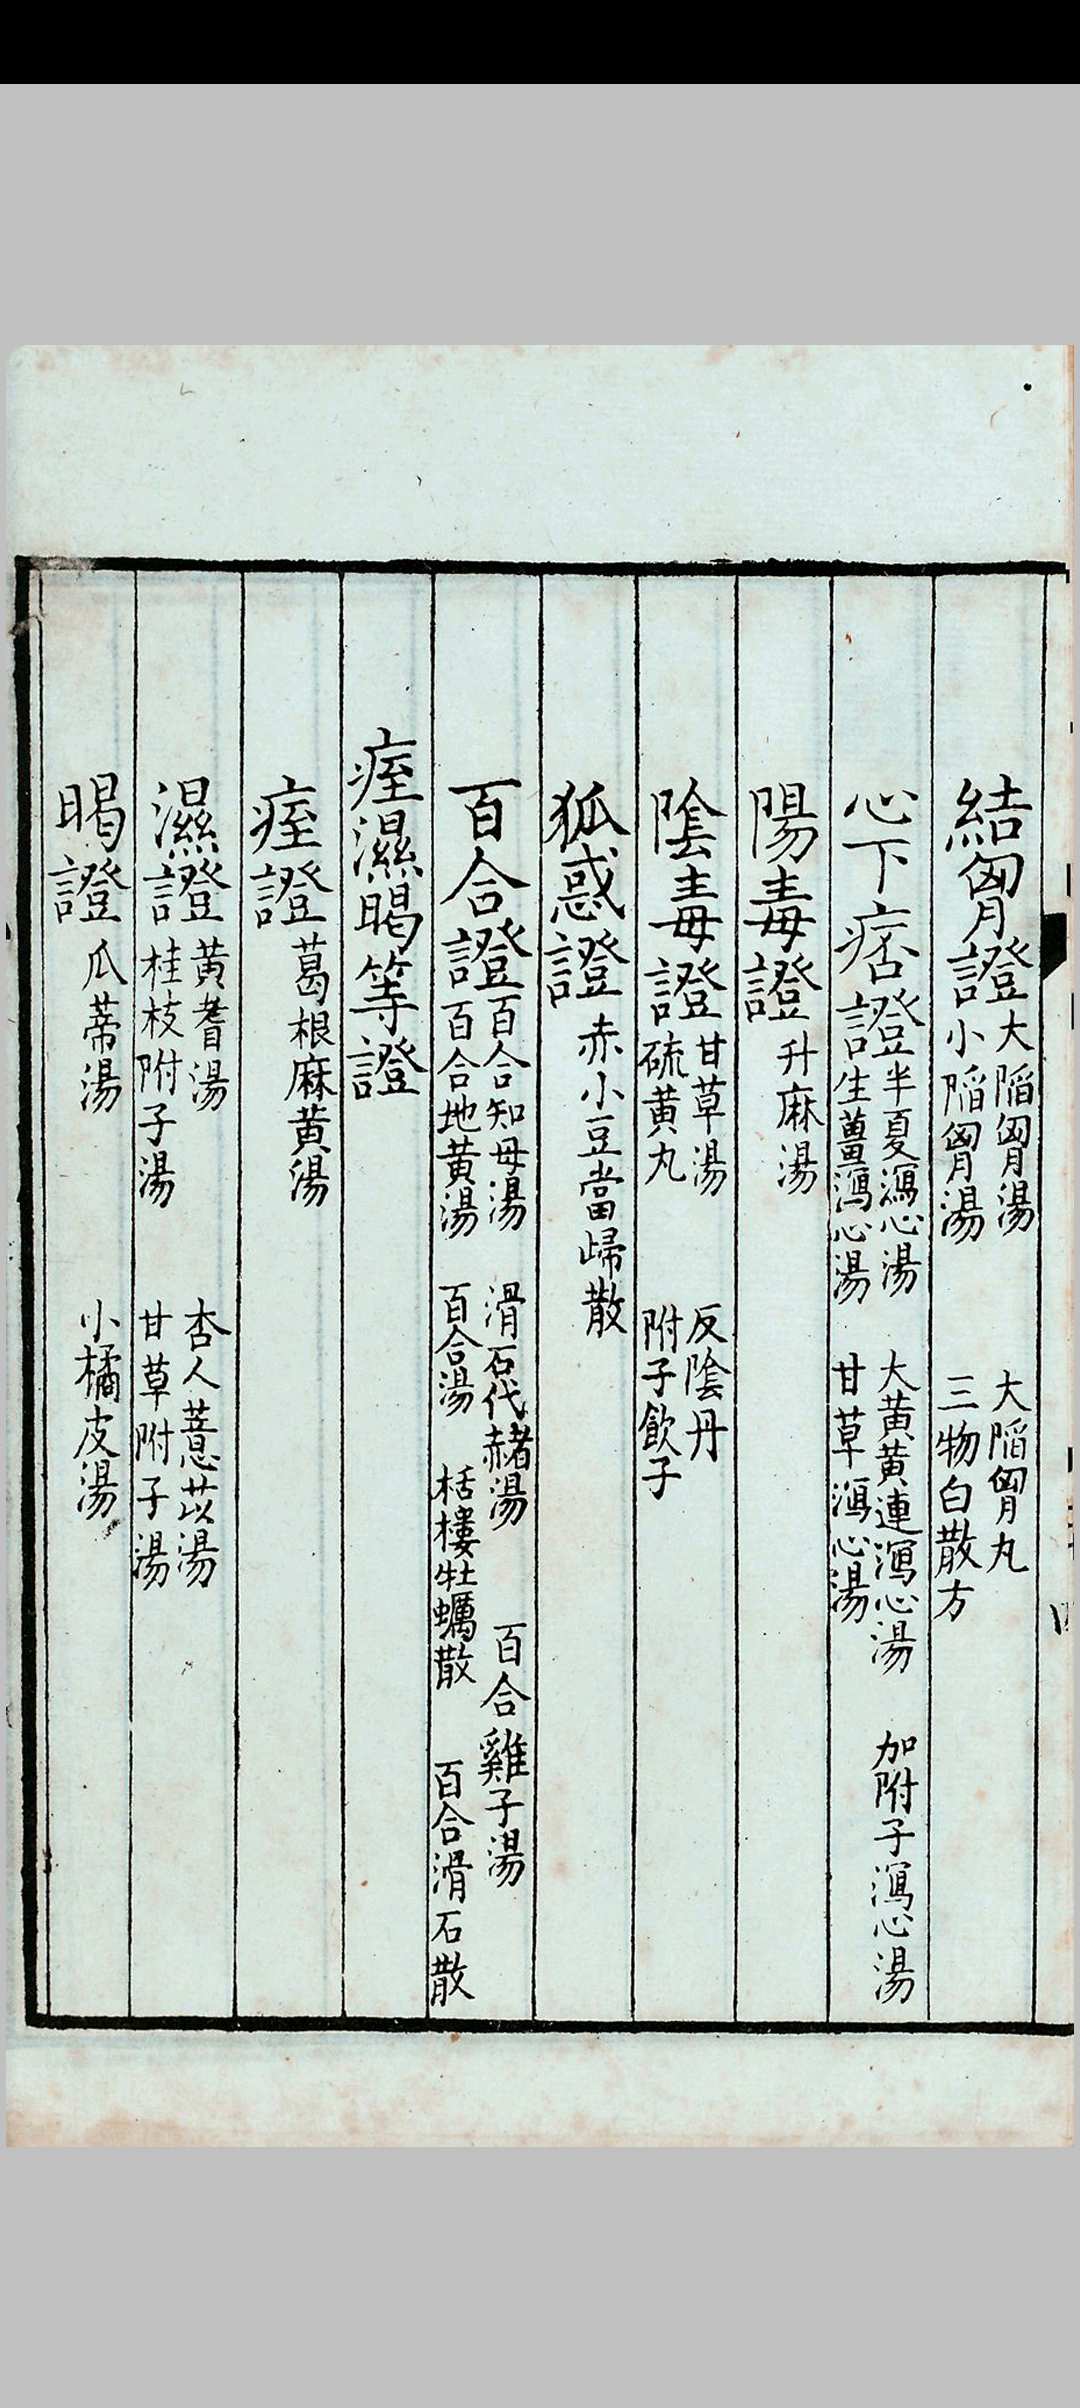 結胷證大陷胷湯 大陷胷丸
小陷胷湯 三物白散方
心下痞證半夏瀉心湯 大黄黄連瀉心湯 加附子瀉心湯
生薑瀉心湯 甘草瀉心湯
陽毒證 升麻湯
陰毒證甘草湯 反陰丹
硫黄丸 附子飲子
狐惑證 赤小豆當歸散
百合證百合知母湯 滑石代赭湯 百合雞子湯
百合地黄湯 百合湯 栝樓牡蠣散 百合滑石散
痓濕暍等證
痓證 葛根麻黄湯
濕證黄耆湯 杏人薏苡湯
桂枝附子湯 甘草附子湯
暍證 瓜蒂湯 小橘皮湯